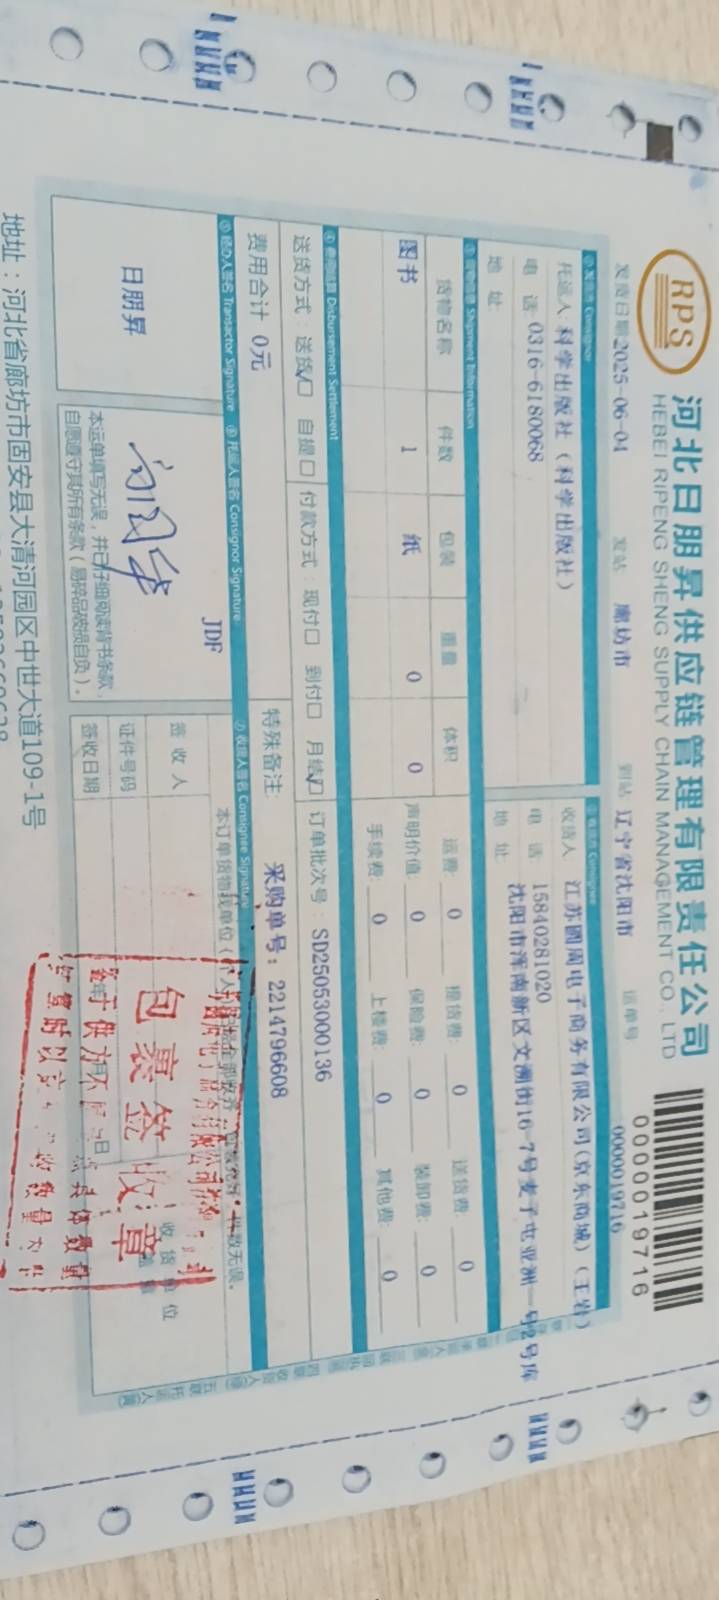 RPS
河北日朋昇供应链管理有限责任公司
HEBEI RIPENG SHENG SUPPLY CHAIN MANAGEMENT CO., LTD
0000019716
发货日期 2025-06-04 发站 廊坊市 到站 辽宁省沈阳市 运单号 0000019716
① 发货方 Consignor ② 收货方 Consignee
托运人 科学出版社（科学出版社） 收货人 江苏圆周电子商务有限公司(京东商城)（王岩）
电 话 0316-6180068 电 话 15840281020
地 址 地 址 沈阳市浑南新区文溯街16-7号麦子屯亚洲一号2号库
③ 货物信息 Shipment Information
货物名称 件数 包装 重量 体积 运费: 0 提货费: 0 送货费: 0
图书 1 纸 0 0 声明价值: 0 保险费: 0 装卸费: 0
手续费: 0 上楼费: 0 其他费: 0
④ 费用结算 Disbursement Settlement
送货方式：送货☑ 自提☐ 付款方式：现付☐ 到付☐ 月结☑ 订单批次号：SD25053000136
费用合计 0元 特殊备注: 采购单号：2214796608
⑤ 经办人签名 Transactor Signature ⑥ 托运人签名 Consignor Signature ⑦ 收货人签名 Consignee Signature
日朋昇
JDF
本运单填写无误，并已仔细阅读背书条款，
自愿遵守其所有条款（易碎品破损自负）。
签 收 人
证件号码
签收日期
包裹签收章
地址：河北省廊坊市固安县大清河园区中世大道109-1号